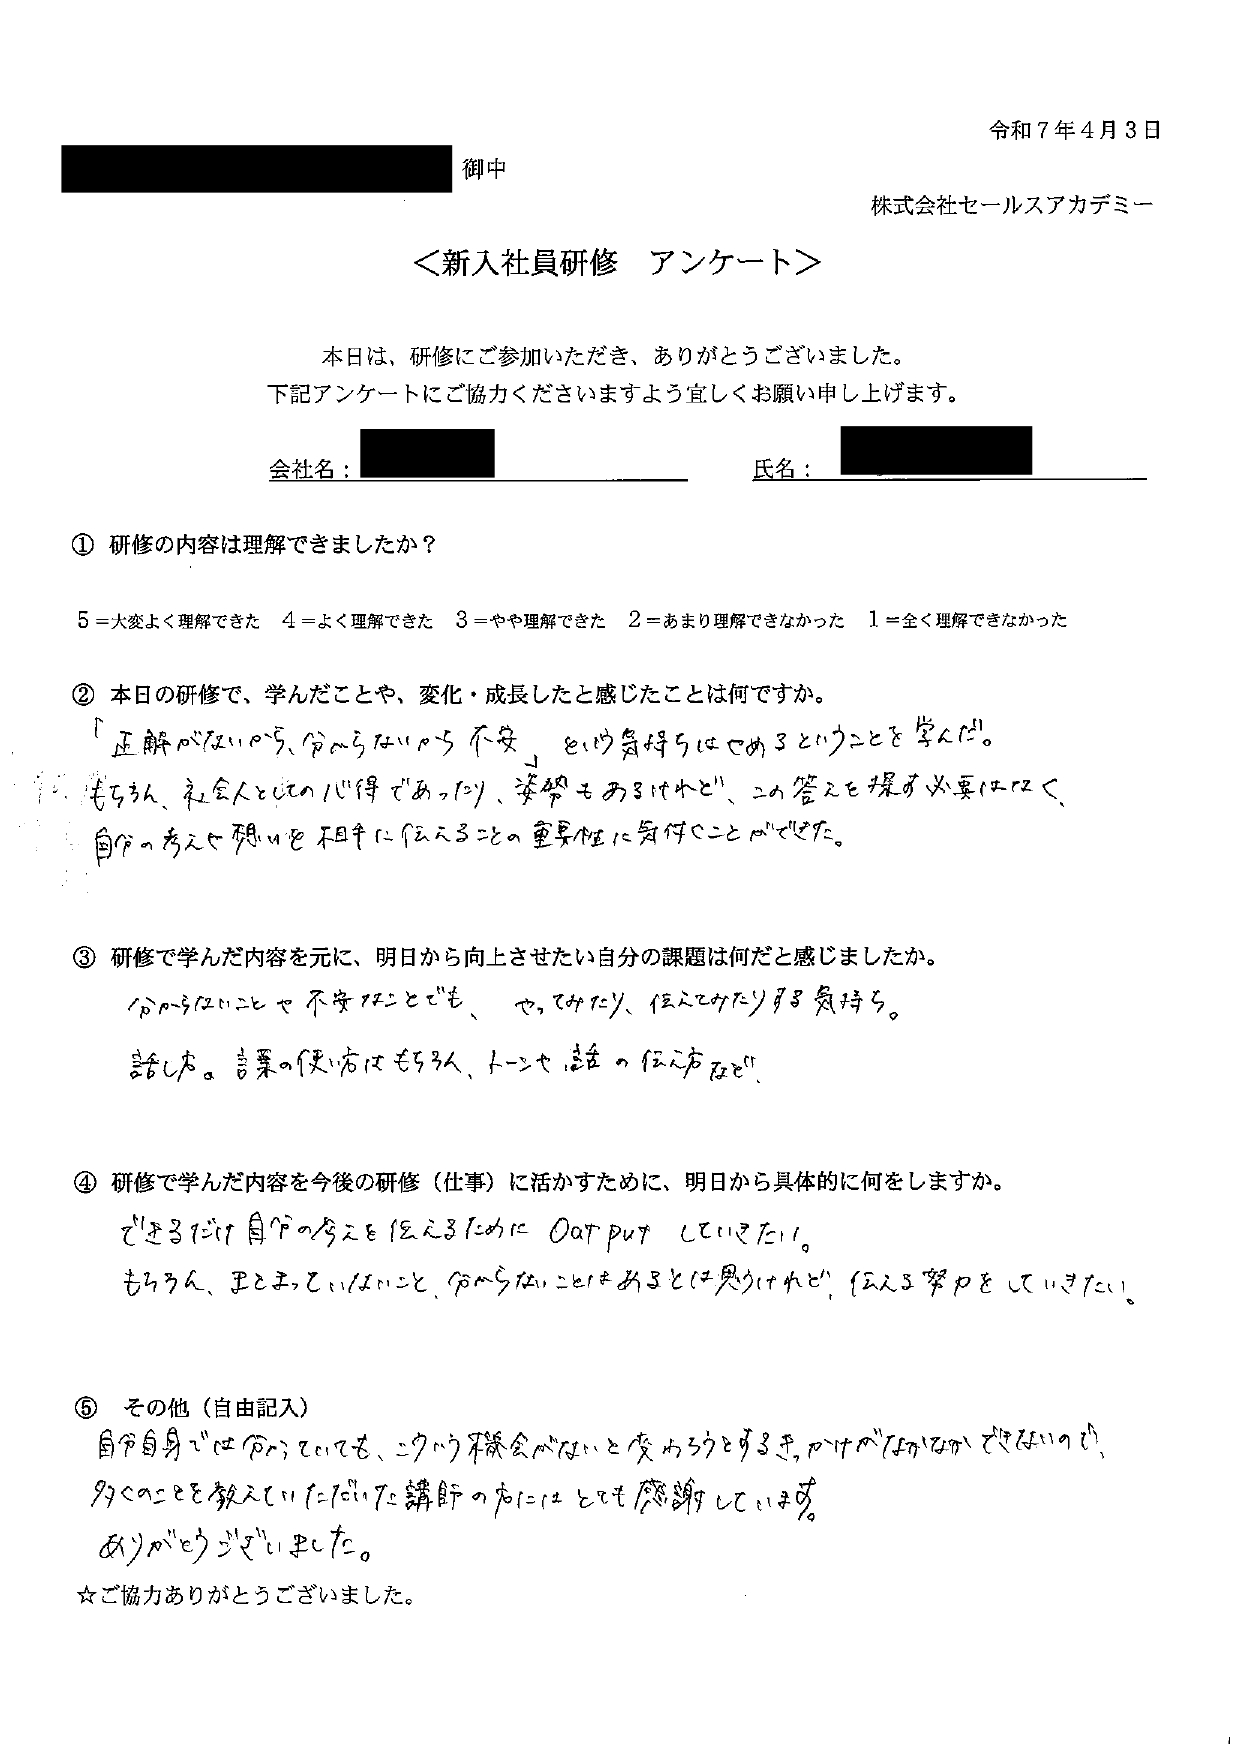 令和7年4月3日
御中
株式会社セールスアカデミー
＜新入社員研修　アンケート＞
本日は、研修にご参加いただき、ありがとうございました。
下記アンケートにご協力くださいますよう宜しくお願い申し上げます。
会社名：　氏名：
① 研修の内容は理解できましたか？
5＝大変よく理解できた　4＝よく理解できた　3＝やや理解できた　2＝あまり理解できなかった　1＝全く理解できなかった
② 本日の研修で、学んだことや、変化・成長したと感じたことは何ですか。
「正解がないから、分からないから不安」という気持ちはやめるということを学んだ。
もちろん、社会人としての心得であったり、姿勢もあるけれど、この答えを探す必要はなく、
自分の考えや想いを相手に伝えることの重要性に気付くことができた。
③ 研修で学んだ内容を元に、明日から向上させたい自分の課題は何だと感じましたか。
分からないことや不安なことでも、やってみたり、伝えてみたりする気持ち。
話し方。言葉の使い方はもちろん、トーンや話の伝え方など、
④ 研修で学んだ内容を今後の研修（仕事）に活かすために、明日から具体的に何をしますか。
できるだけ自分の考えを伝えるために Output していきたい。
もちろん、まとまっていないこと、分からないことはあるとは思うけれど、伝える努力をしていきたい。
⑤　その他（自由記入）
自分自身では分かっていても、こういう機会がないと変わろうとするきっかけがなかなかできないので、
多くのことを教えていただいた講師の方にはとても感謝しています。
ありがとうございました。
☆ご協力ありがとうございました。